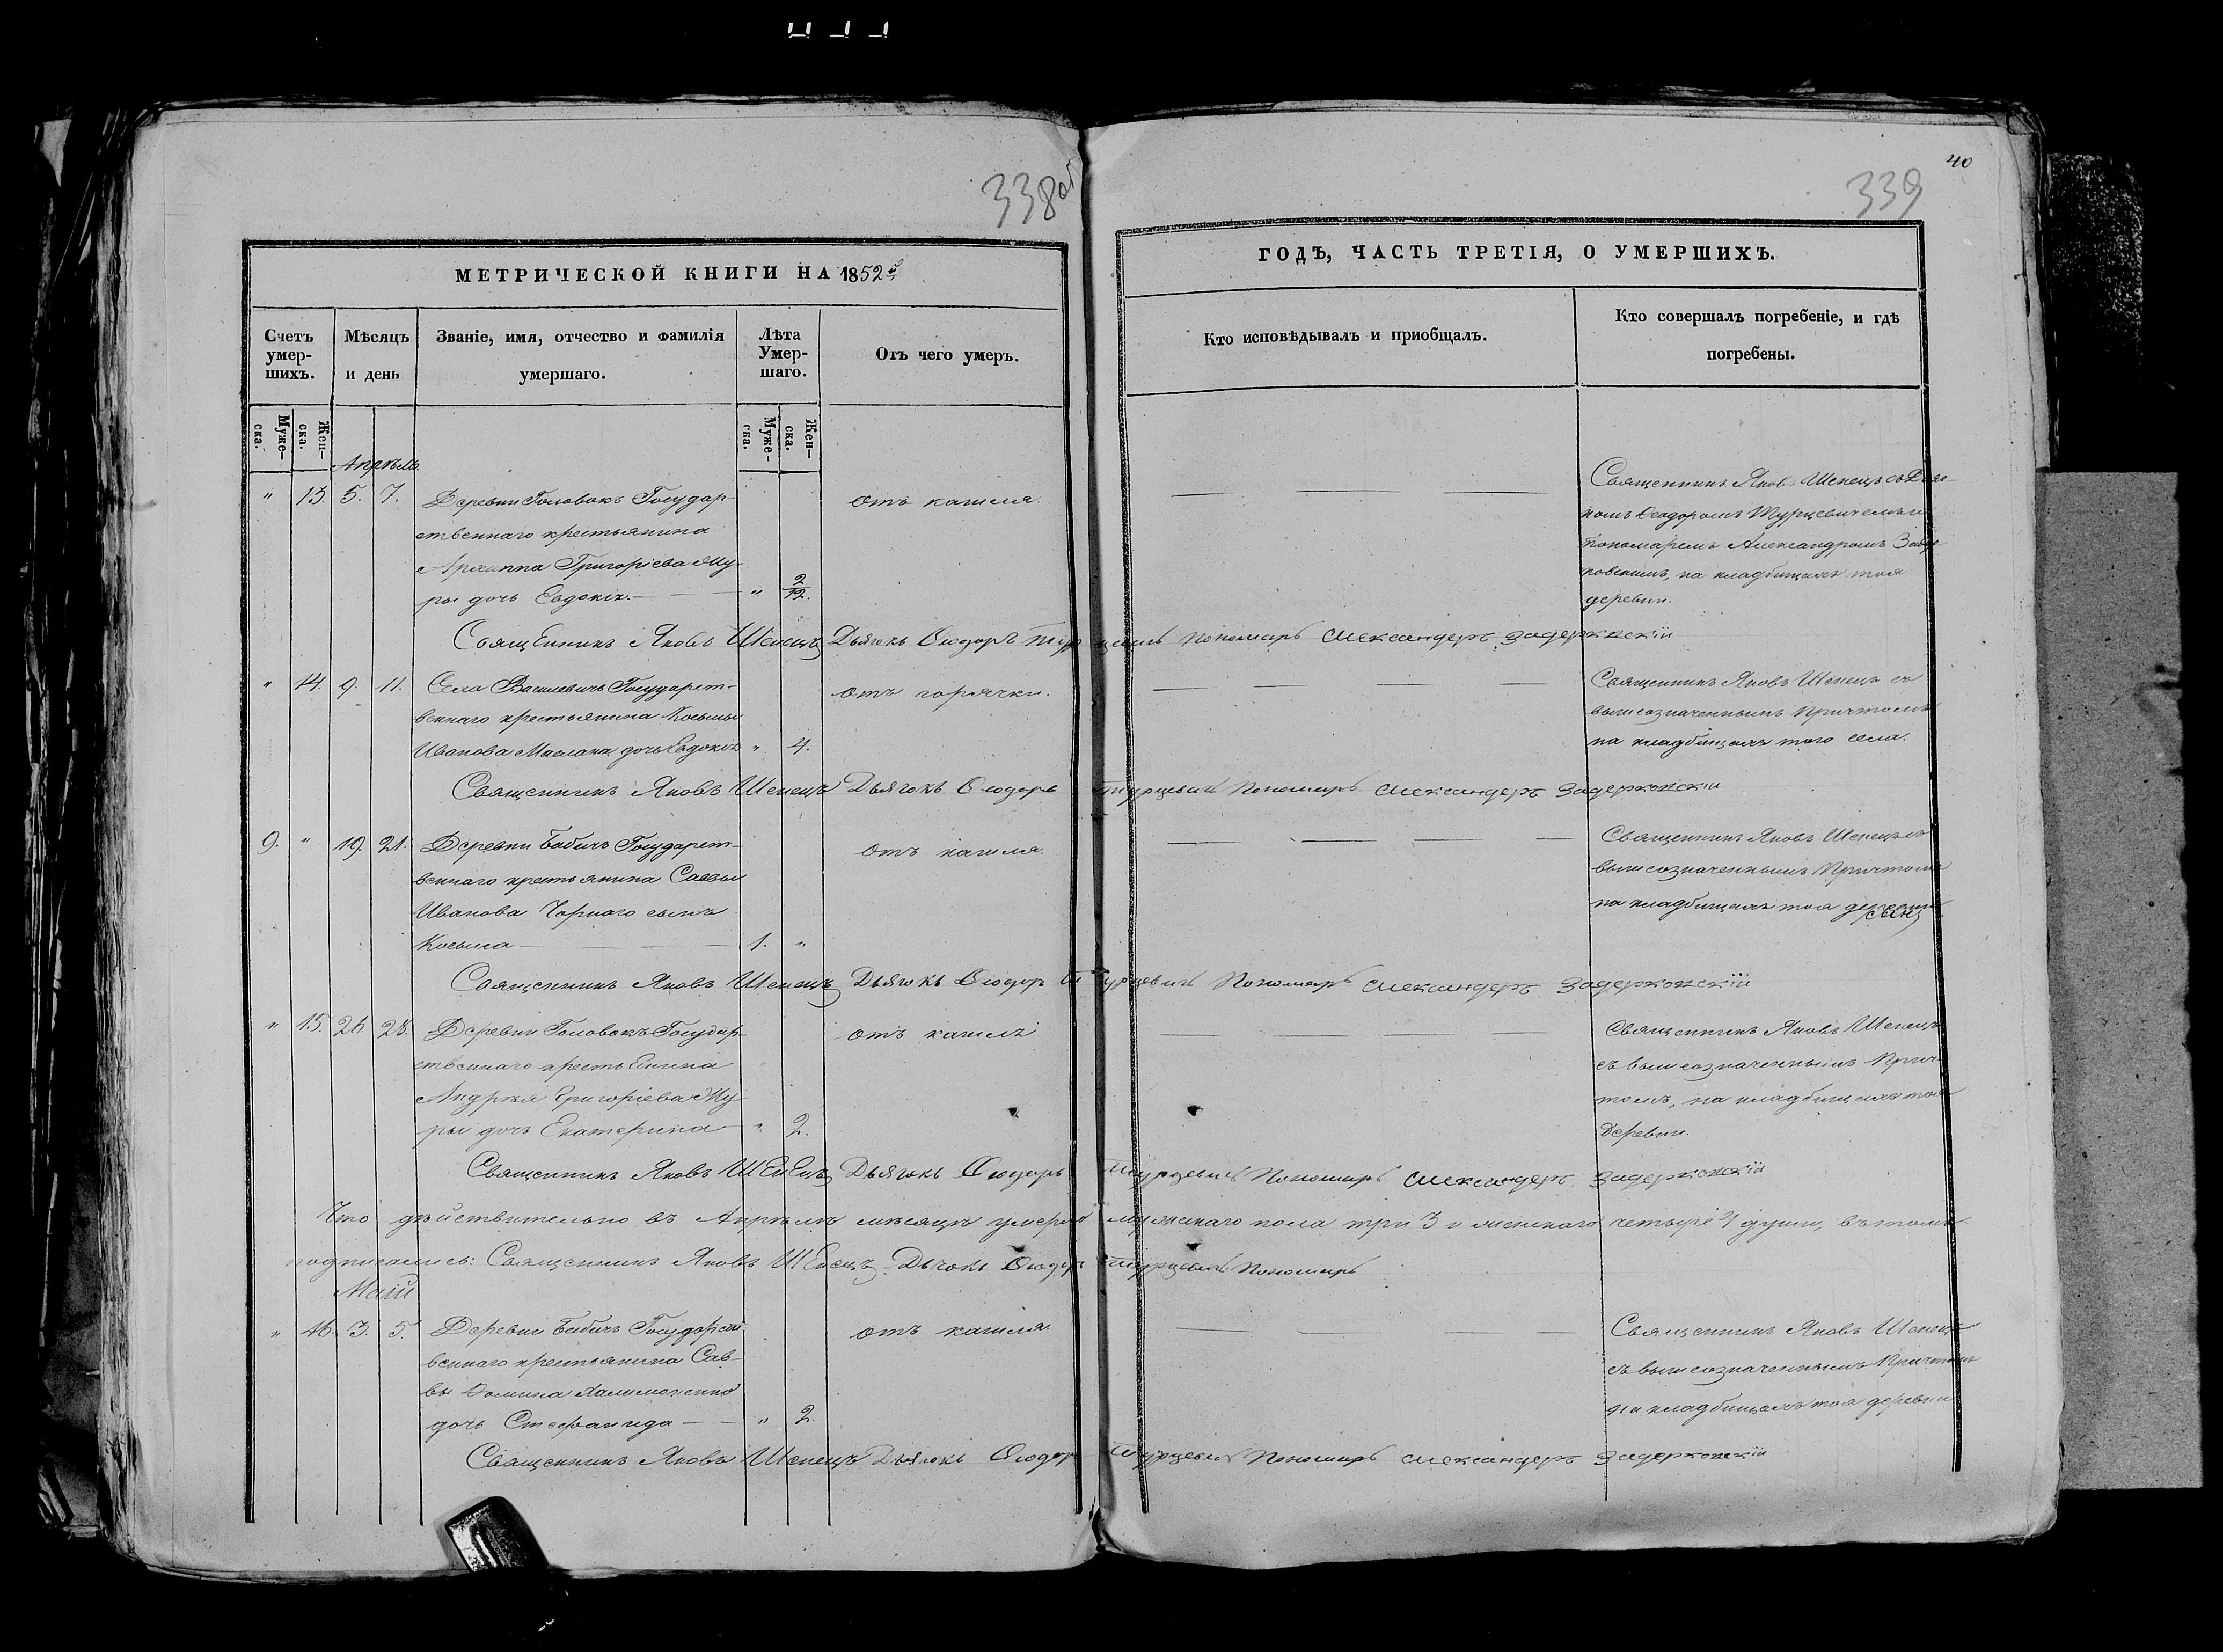 338об
40
339
МЕТРИЧЕСКОЙ КНИГИ НА 1852й
ГОДЪ, ЧАСТЬ ТРЕТІЯ, О УМЕРШИХЪ.
Счетъ умер-шихъ.
Мѣсяцъ и день
Званіе, имя, отчество и фамилія умершаго.
Лѣта Умер-шаго.
Отъ чего умеръ.
Кто исповѣдывалъ и приобщалъ.
Кто совершалъ погребеніе, и гдѣ погребены.
Муже-ска.
Жен-ска.
Муже-ска.
Жен-ска.
Апрѣль
" 13. 5. 7. Деревни Головокъ Государ-
ственнаго крестьянина
Архиппа Григоріева Му-
ры дочь Евдокія. " 2/12.
отъ кашля.
Священникъ Яковъ Шепецъ съ Дьяч
комъ Феодоромъ Турцевичемъ и
пономаремъ Александромъ
на кладбищахъ тоя
деревни.
Священникъ Яковъ Шепецъ Дьячокъ Ѳеодоръ Турцевичъ Пономарь Александеръ Задерковскій
" 14. 9. 11. Села Василевичъ Государст-
веннаго крестьянина Косьмы
Иванова Маслака дочь Евдокія " 4.
отъ горячки.
Священникъ Яковъ Шепецъ съ
вышеозначеннымъ Причтомъ
на кладбищахъ того села.
Священникъ Яковъ Шепецъ Дьячокъ Ѳеодоръ Турцевичъ Пономарь Александеръ Задерковскій
9. " 19. 21. Деревни Бабичъ Государст-
веннаго крестьянина Саввы
Иванова Чорнаго сынъ
Косьма 1. "
отъ кашля.
Священникъ Яковъ Шепецъ съ
вышеозначеннымъ Причтомъ
на кладбищахъ тоя деревни
Священникъ Яковъ Шепецъ Дьячокъ Ѳеодоръ Турцевичъ Пономарь Александеръ Задерковскій
" 15. 26. 28. Деревни Головокъ Государ-
ственнаго крестьенина
Андрея Григоріева Му-
ры дочь Екатерина " 2.
отъ кашля
Священникъ Яковъ Шепецъ
съ вышеозначеннымъ Прич-
томъ, на кладбищахъ тоя
Деревни.
Священникъ Яковъ Шепецъ Дьячокъ Ѳеодоръ Турцевичъ Пономарь Александеръ Задерковскій
Что дѣйствительно въ Апрѣлѣ мѣсяцѣ умерло мужскаго пола три 3 и женскаго четыре 4 души, въ томъ
подписались: Священникъ Яковъ Шепецъ Дьчокъ Ѳеодоръ Турцевичъ Пономарь
Маій
" 16. 3. 5. Деревни Бабичъ Государст-
веннаго крестьянина Сав-
вы Халимоненко
дочь Стефанида " 2.
отъ кашля.
Священникъ Яковъ Шепецъ
съ вышеозначеннымъ Причтомъ
на кладбищахъ тоя деревни
Священникъ Яковъ Шепецъ Дьячокъ Ѳеодоръ Турцевичъ Пономарь Александеръ Задерковскій